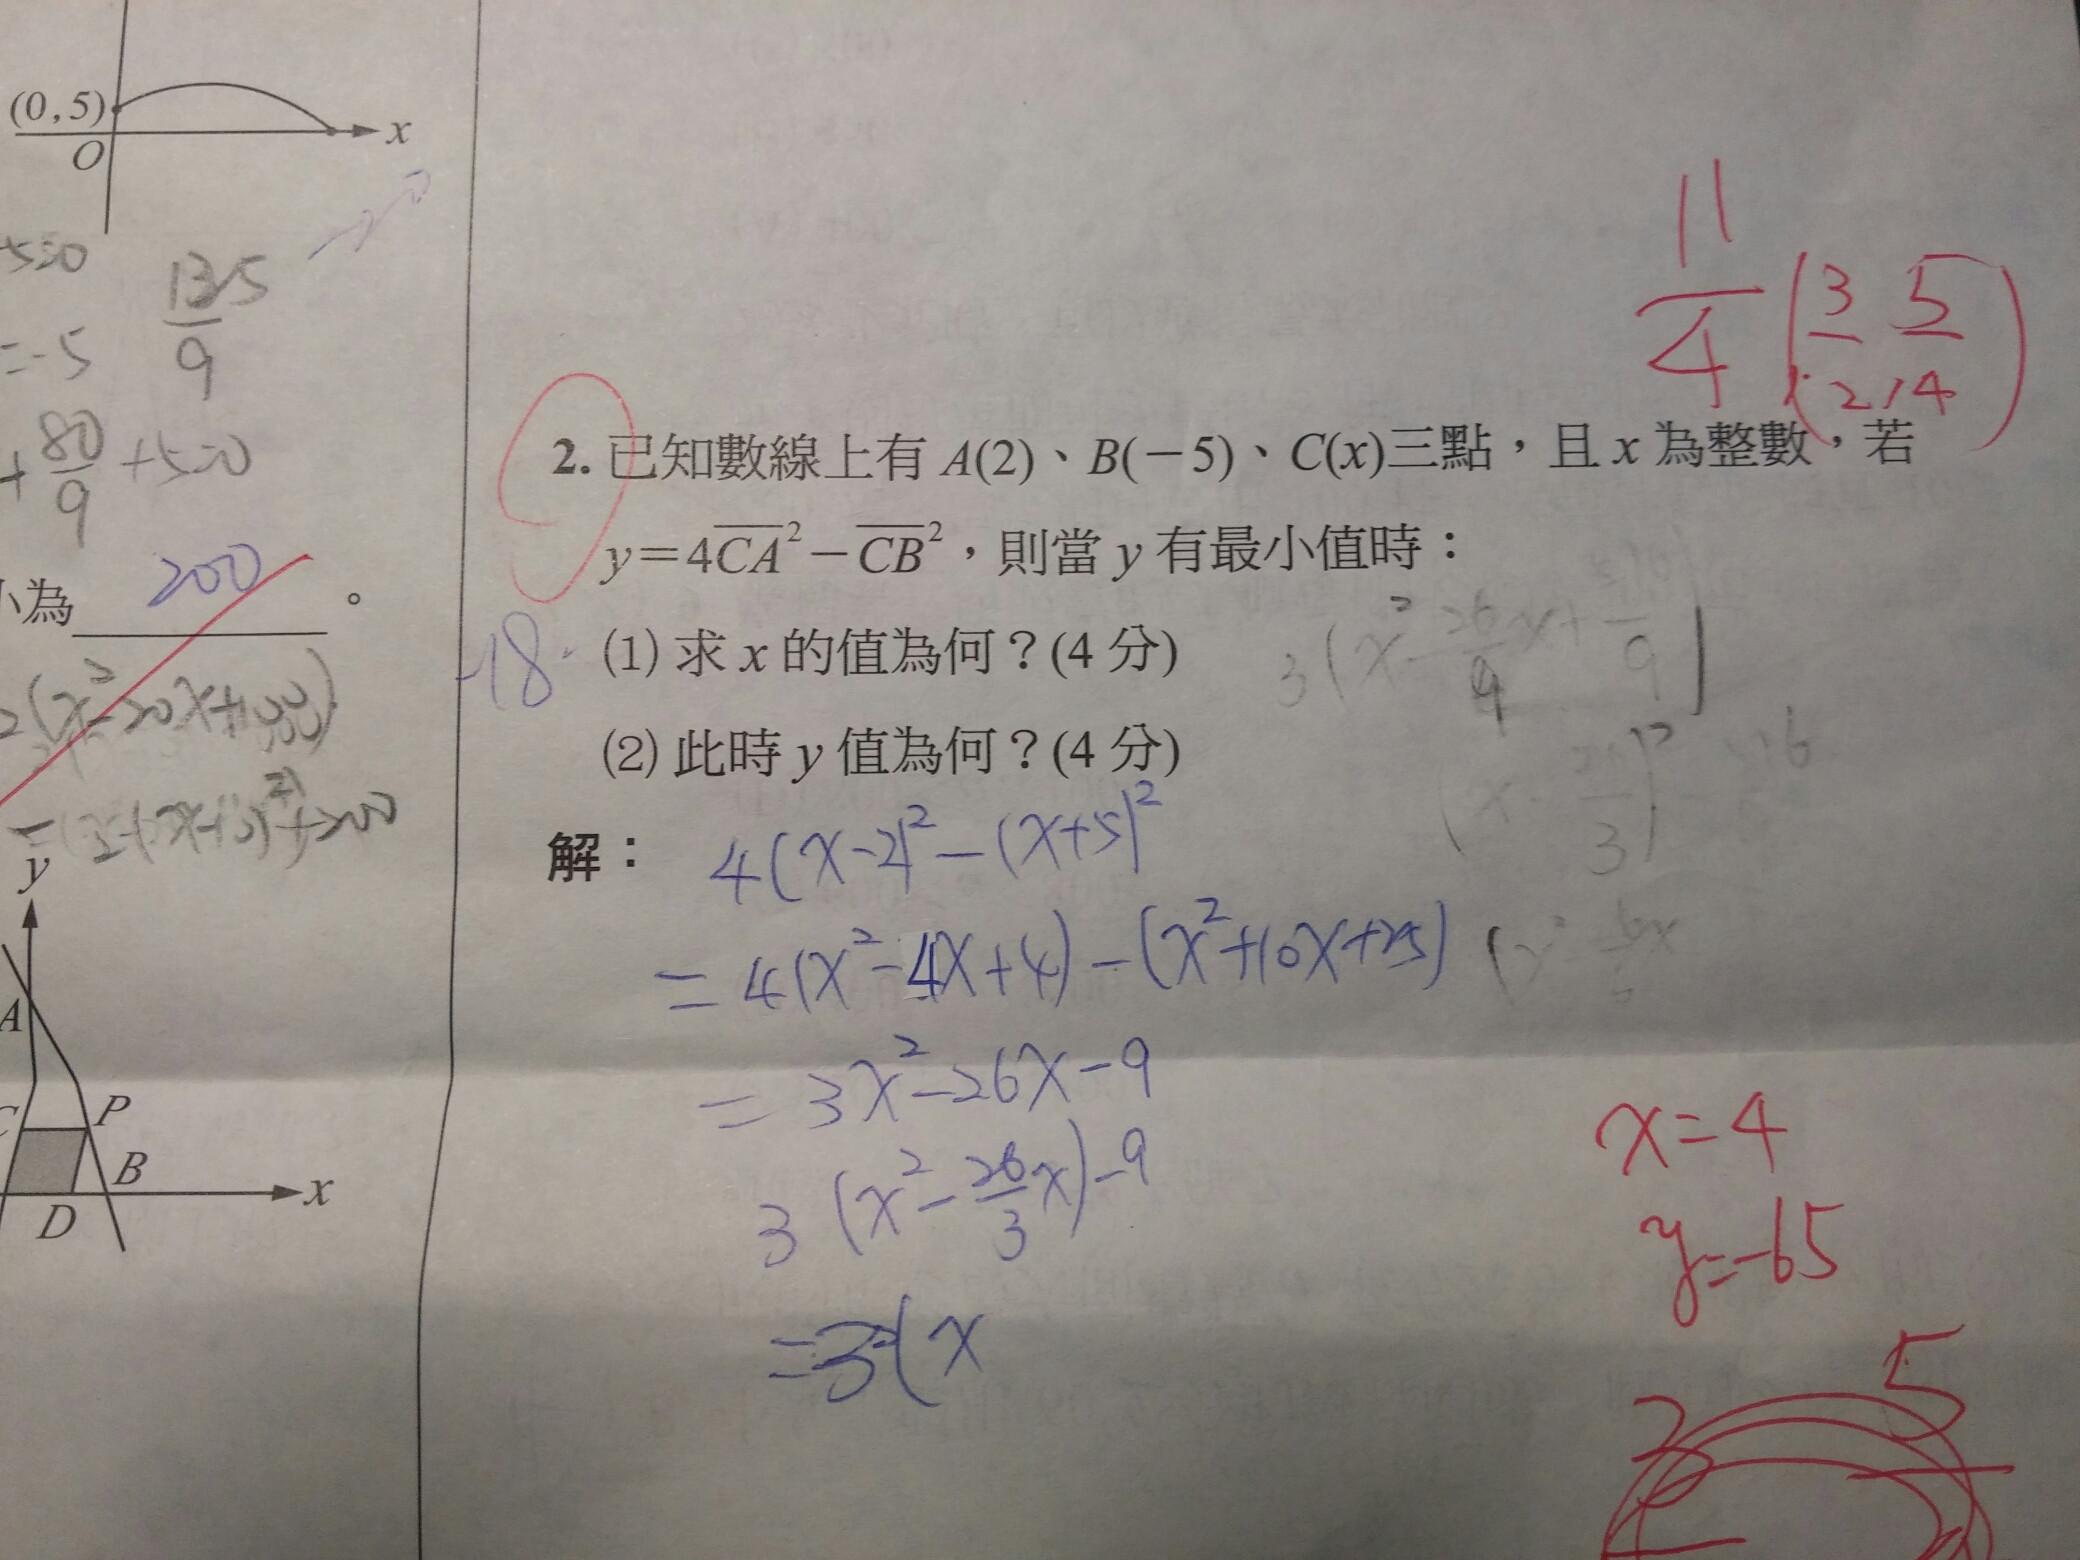 (0,5)
x
O
+5=0
135/9
=-5
+80/9+5=0
小為 200 。
2(x²-20x+100)
+200
y
A
C
P
B
D
x
11/4
(3/2, 5/4)
2. 已知數線上有 A(2)、B(-5)、C(x)三點，且 x 為整數，若
y=4CA²-CB²，則當 y 有最小值時：
-18
(1) 求 x 的值為何？(4 分)
(2) 此時 y 值為何？(4 分)
解： 4(x-2)²-(x+5)²
=4(x²-4x+4)-(x²+10x+25)
=3x²-26x-9
3(x²-26/3x)-9
=3(x
x=4
y=-65
5
3